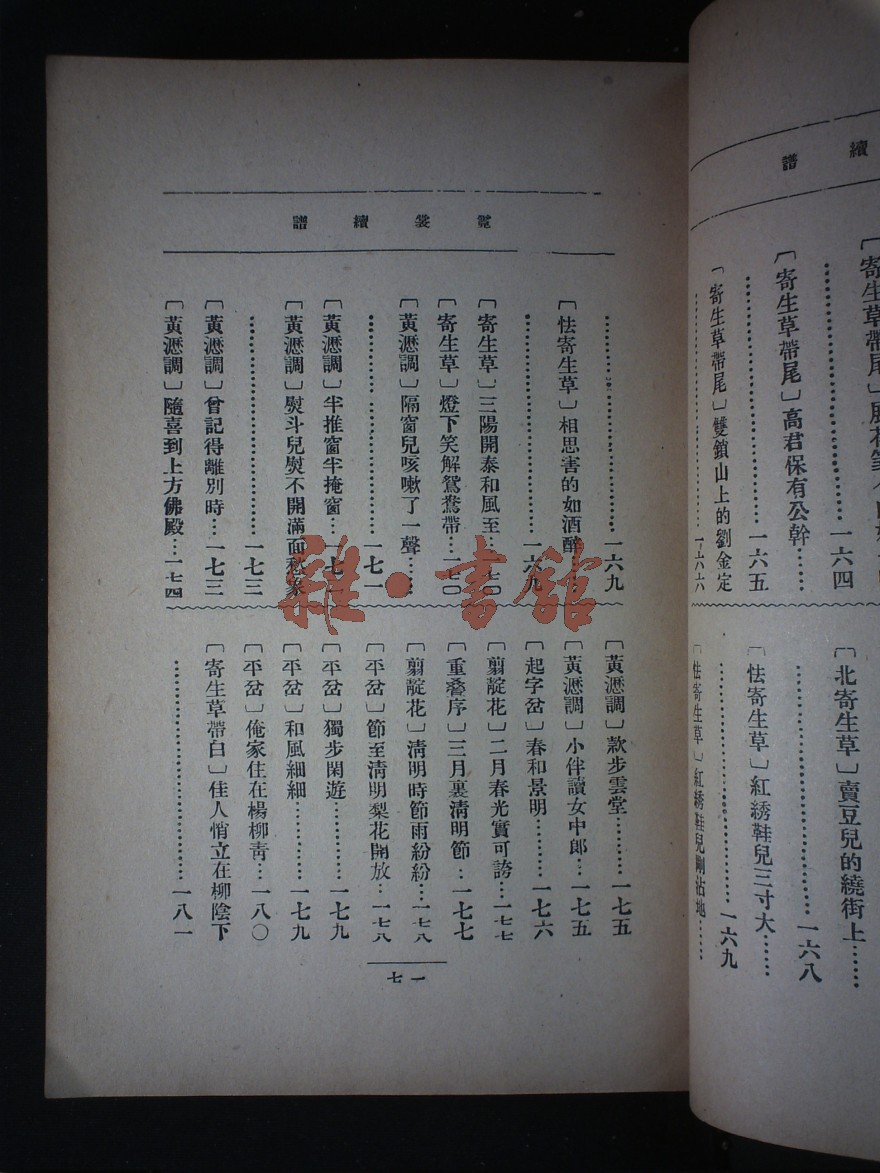 續譜
寄生草帶尾
一六四
〔寄生草帶尾〕高君保有公幹……
………一六五
〔寄生草帶尾〕雙鎖山上的劉金定
………一六六
〔北寄生草〕賣豆兒的繞街上……
………一六八
〔怯寄生草〕紅綉鞋兒三寸大……
………一六九
〔怯寄生草〕紅綉鞋兒剛沾地……
霓裳續譜
………一六九
〔怯寄生草〕相思害的如酒醉…
………一六九
〔寄生草〕三陽開泰和風至…一七〇
〔寄生草〕燈下笑解鴛鴦帶…一七〇
〔黃瀝調〕隔窗兒咳嗽了一聲……
………一七一
〔黃瀝調〕半推窗半掩窗…一七二
〔黃瀝調〕熨斗兒熨不開滿面愁象
………一七三
〔黃瀝調〕曾記得離別時…一七三
〔黃瀝調〕隨喜到上方佛殿…一七四
〔黃瀝調〕款步雲堂………一七五
〔黃瀝調〕小伴讀女中郎…一七五
〔起字岔〕春和景明………一七六
〔翦靛花〕二月春光實可誇…一七七
〔重疊序〕三月裏清明節…一七七
〔翦靛花〕清明時節雨紛紛…一七八
〔平岔〕節至清明梨花開放…一七八
〔平岔〕獨步閑遊………一七九
〔平岔〕和風細細………一七九
〔平岔〕俺家住在楊柳青…一八〇
〔寄生草帶白〕佳人悄立在柳陰下
………一八一
一七
雜·書館